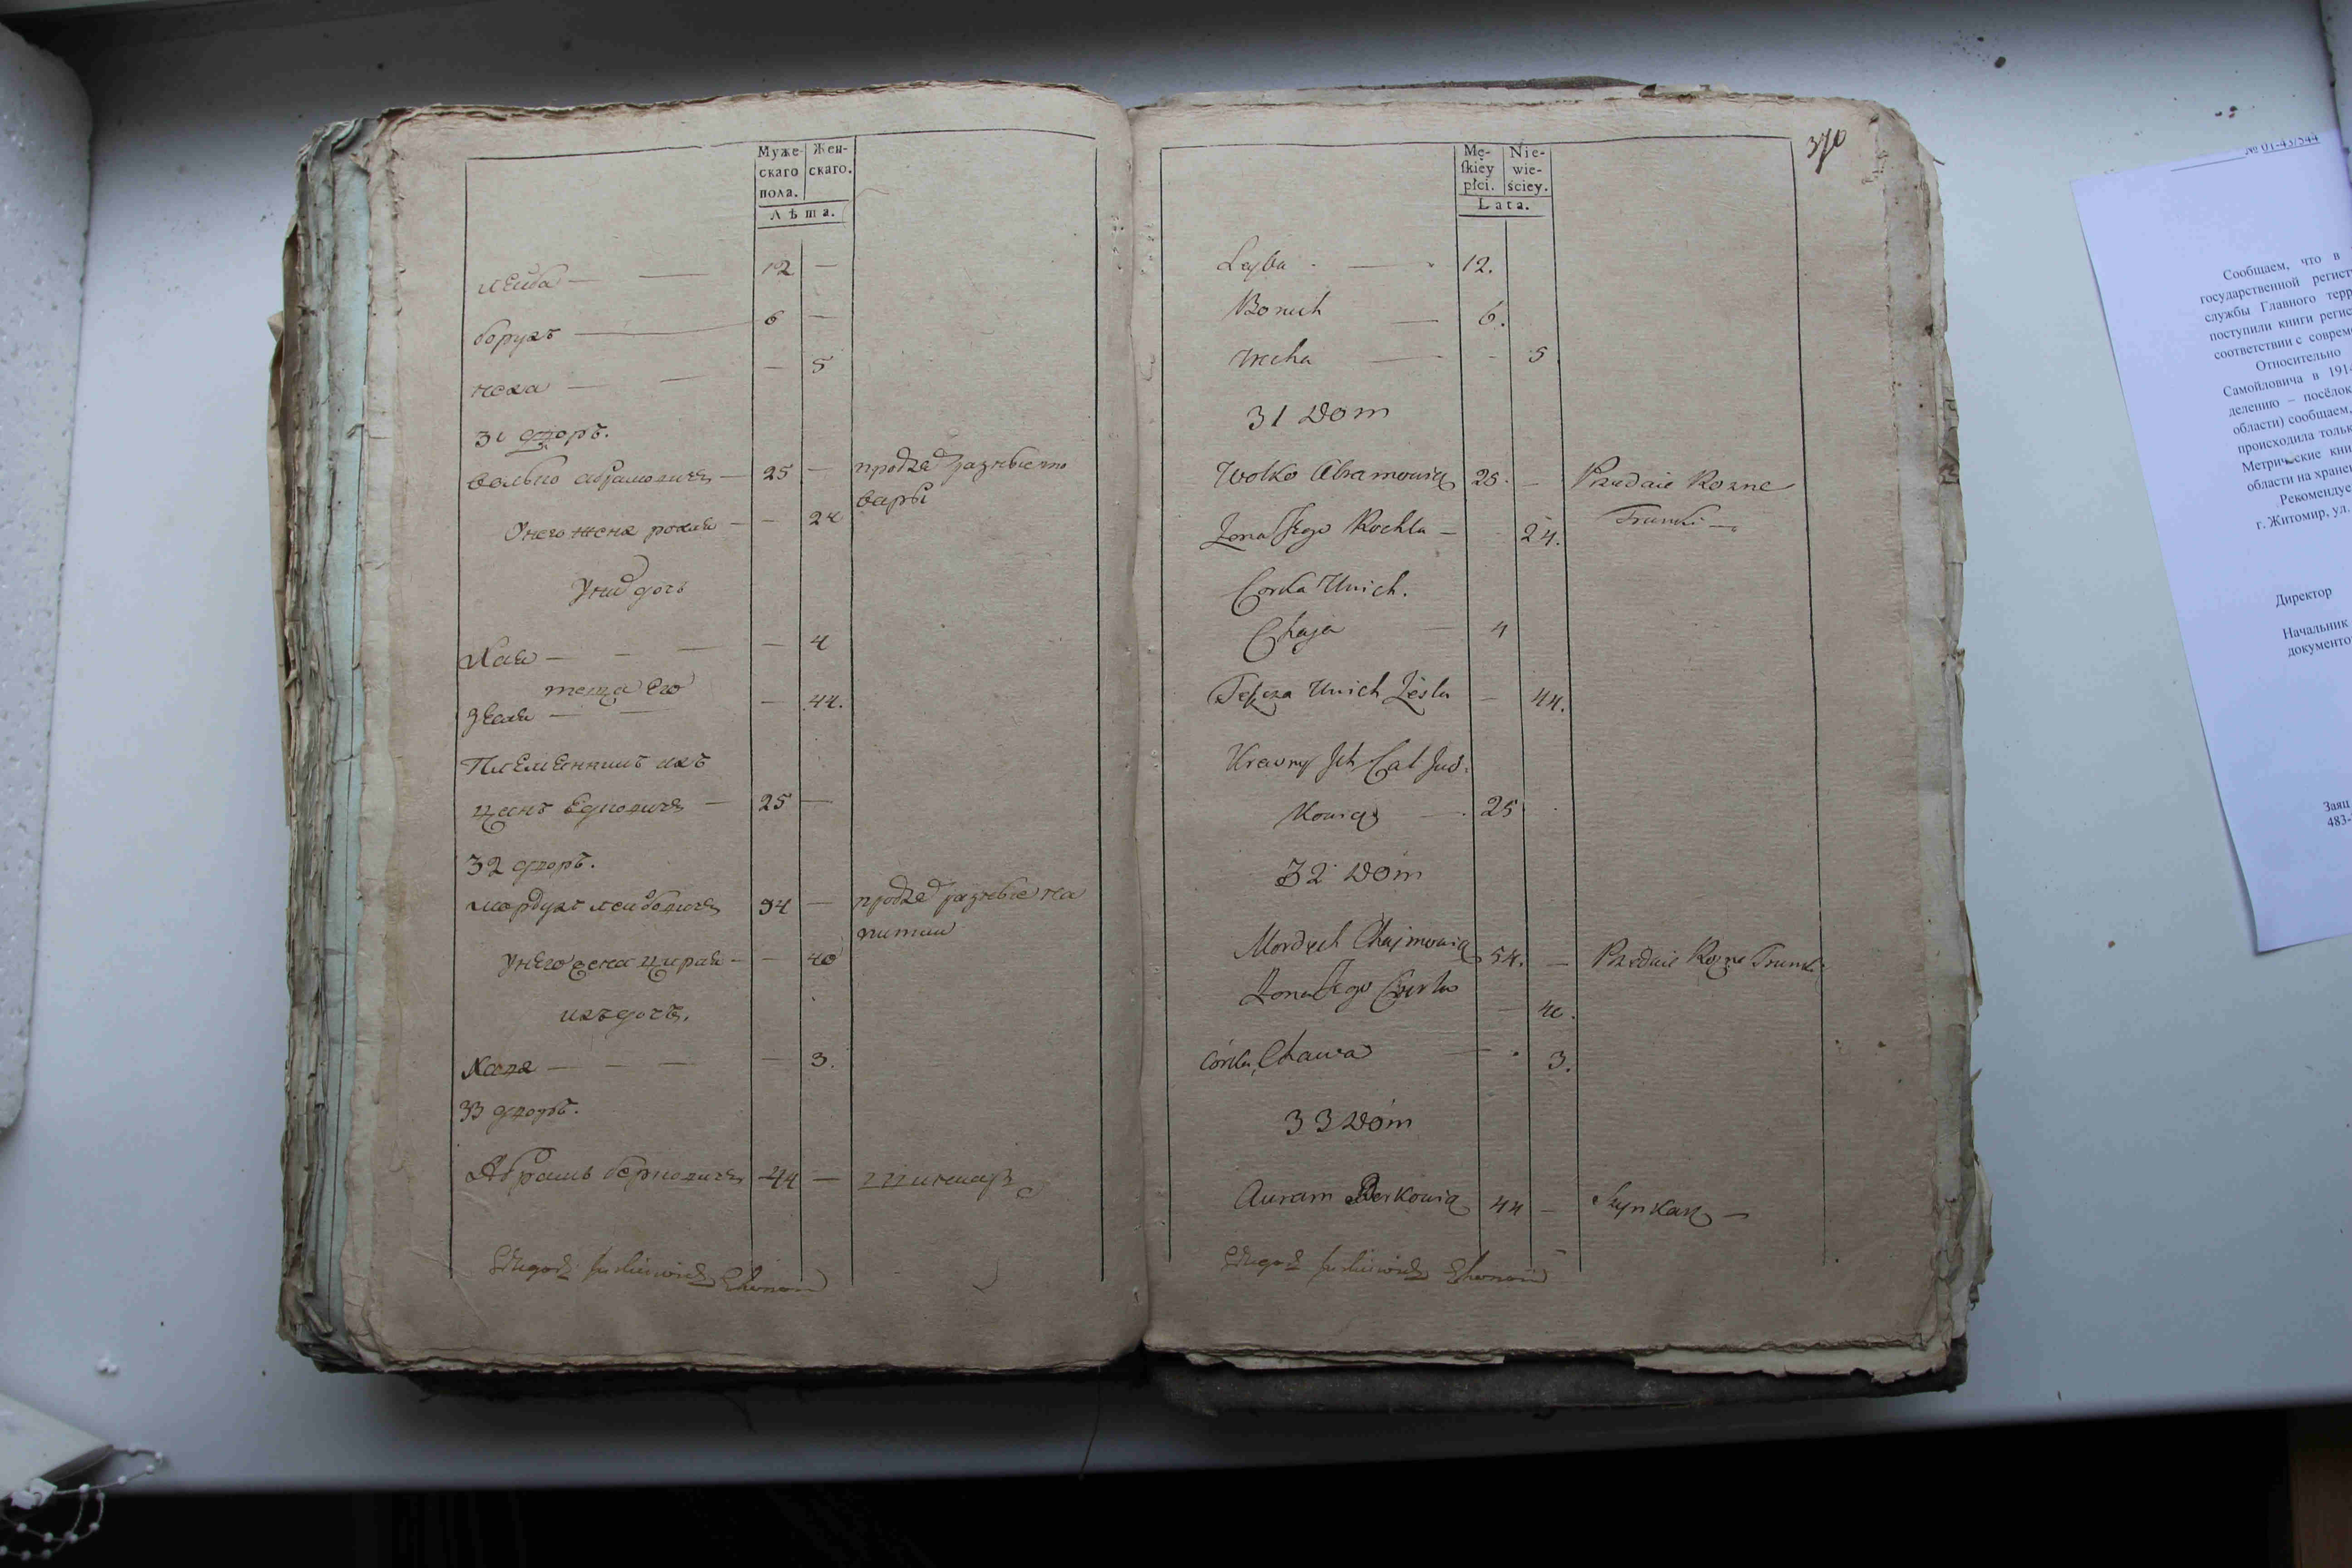 Муже-
скаго
пола.
Жен-
скаго.
Лѣта.
лейба — — 12 —
борухъ — 6 —
неха — — — 5
31 дворъ.
волько абрамовичъ — 25 — продае разные то
вары
У него жена рохля — — 24
У них дочь
Хая — — — — 4
теща его
зесля — — — 44.
Племенникъ ихъ
— 25 —
32 дворъ.
мордухъ лейбовичъ 34 — продае разные на
питки
У него жена цирля — — 40
ихъ дочь.
Хава — — — — 3.
33 дворъ.
Абрамъ берковичъ 44 — шинкаръ
370
Mę-
skiey
płci.
Nie-
wie-
ściey.
Lata.
Leyba — 12.
Boruch — 6.
Necha — - 5
31 Dom
Wolko Abramowicz 25. — Przedaie Rozne
Trunki —
Zona Jego Rochla — 24.
Corka Unich.
Chaja — 4
Unich Zesla — 44.
— 25
32 Dom
Morduch Chajmowicz 54. — Przedaie Rozne Trunki
Zona Jego — 40.
Córka, Chawa — 3.
33 Dom
Auram Berkowicz 44 — Szynkarz —
№ 01-43/344
Сообщаем, что в
государственной регист
службы Главного терр
поступили книги регис
соответствии с соврем
Относительно
Самойловича в 1914
делению – посёлок
области) сообщаем,
происходила тольк
Метрические кни
области на хранен
Рекомендуе
г. Житомир, ул.
Директор
Начальник
документо
Заяц
483-